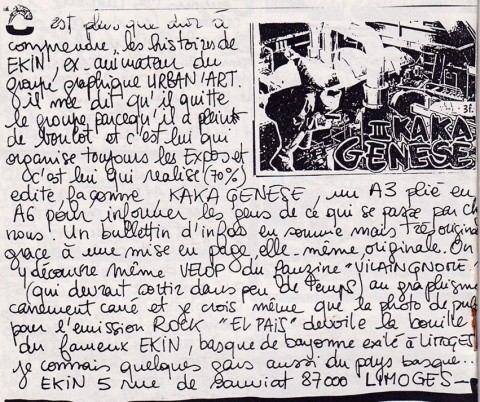 C est plus que dur à
comprendre, les histoires de
EKIN, ex-animateur du
groupe graphique URBAN'ART.
il me dit qu'il quitte
le groupe parcequ'il a pleins
de boulot et c'est lui qui
organise toujours les Expos et
c'est lui qui réalise (70%)
edite, façonne, KAKA GENESE, un A3 plié en
A6 pour informer les gens de ce qui se passe par ch
nous. Un bulletin d'infos en somme mais très original
grace à une mise en page, elle-même, originale. On
y découvre même VELOP du fanzine "VILAINGNORE"
(qui devrait sortir dans peu de temps) au graphisme
carrément carré et je crois même que la photo de pub
pour l'émission ROCK "EL PAIS" dévoile la bouille
du fameux EKIN, basque de bayonne exilé à LIMOGES
je connais quelques gars aussi du pays basque...
EKIN 5 rue de sauviat 87000 LIMOGES—
3F.
III KAKA
GENESE